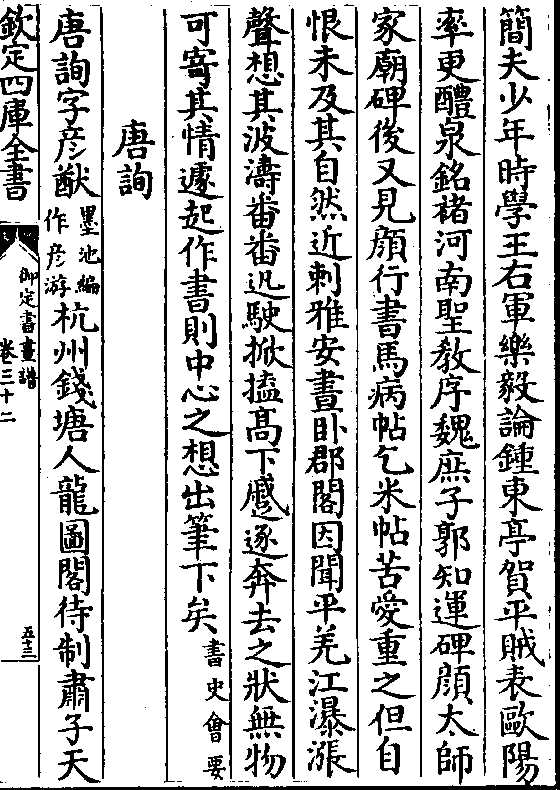 簡夫少年時學王右軍樂毅論鍾東亭賀平賊表歐陽
率更醴泉銘褚河南聖教序魏庶子郭知運碑顔太師
家廟碑後又見顔行書馬病帖乞米帖苦愛重之但自
恨未及其自然近刺雅安晝卧郡閣因聞平羌江瀑漲
聲想其波濤番番迅駛掀搕髙下蹙逐奔去之狀無物
可寄其情遽起作書則中心之想出筆下矣書史會要
唐詢
唐詢字彦猷墨池編作彦游杭州錢塘人龍圖閣待制肅子天
欽定四庫全書
御定書畫譜
卷三十二
五十三